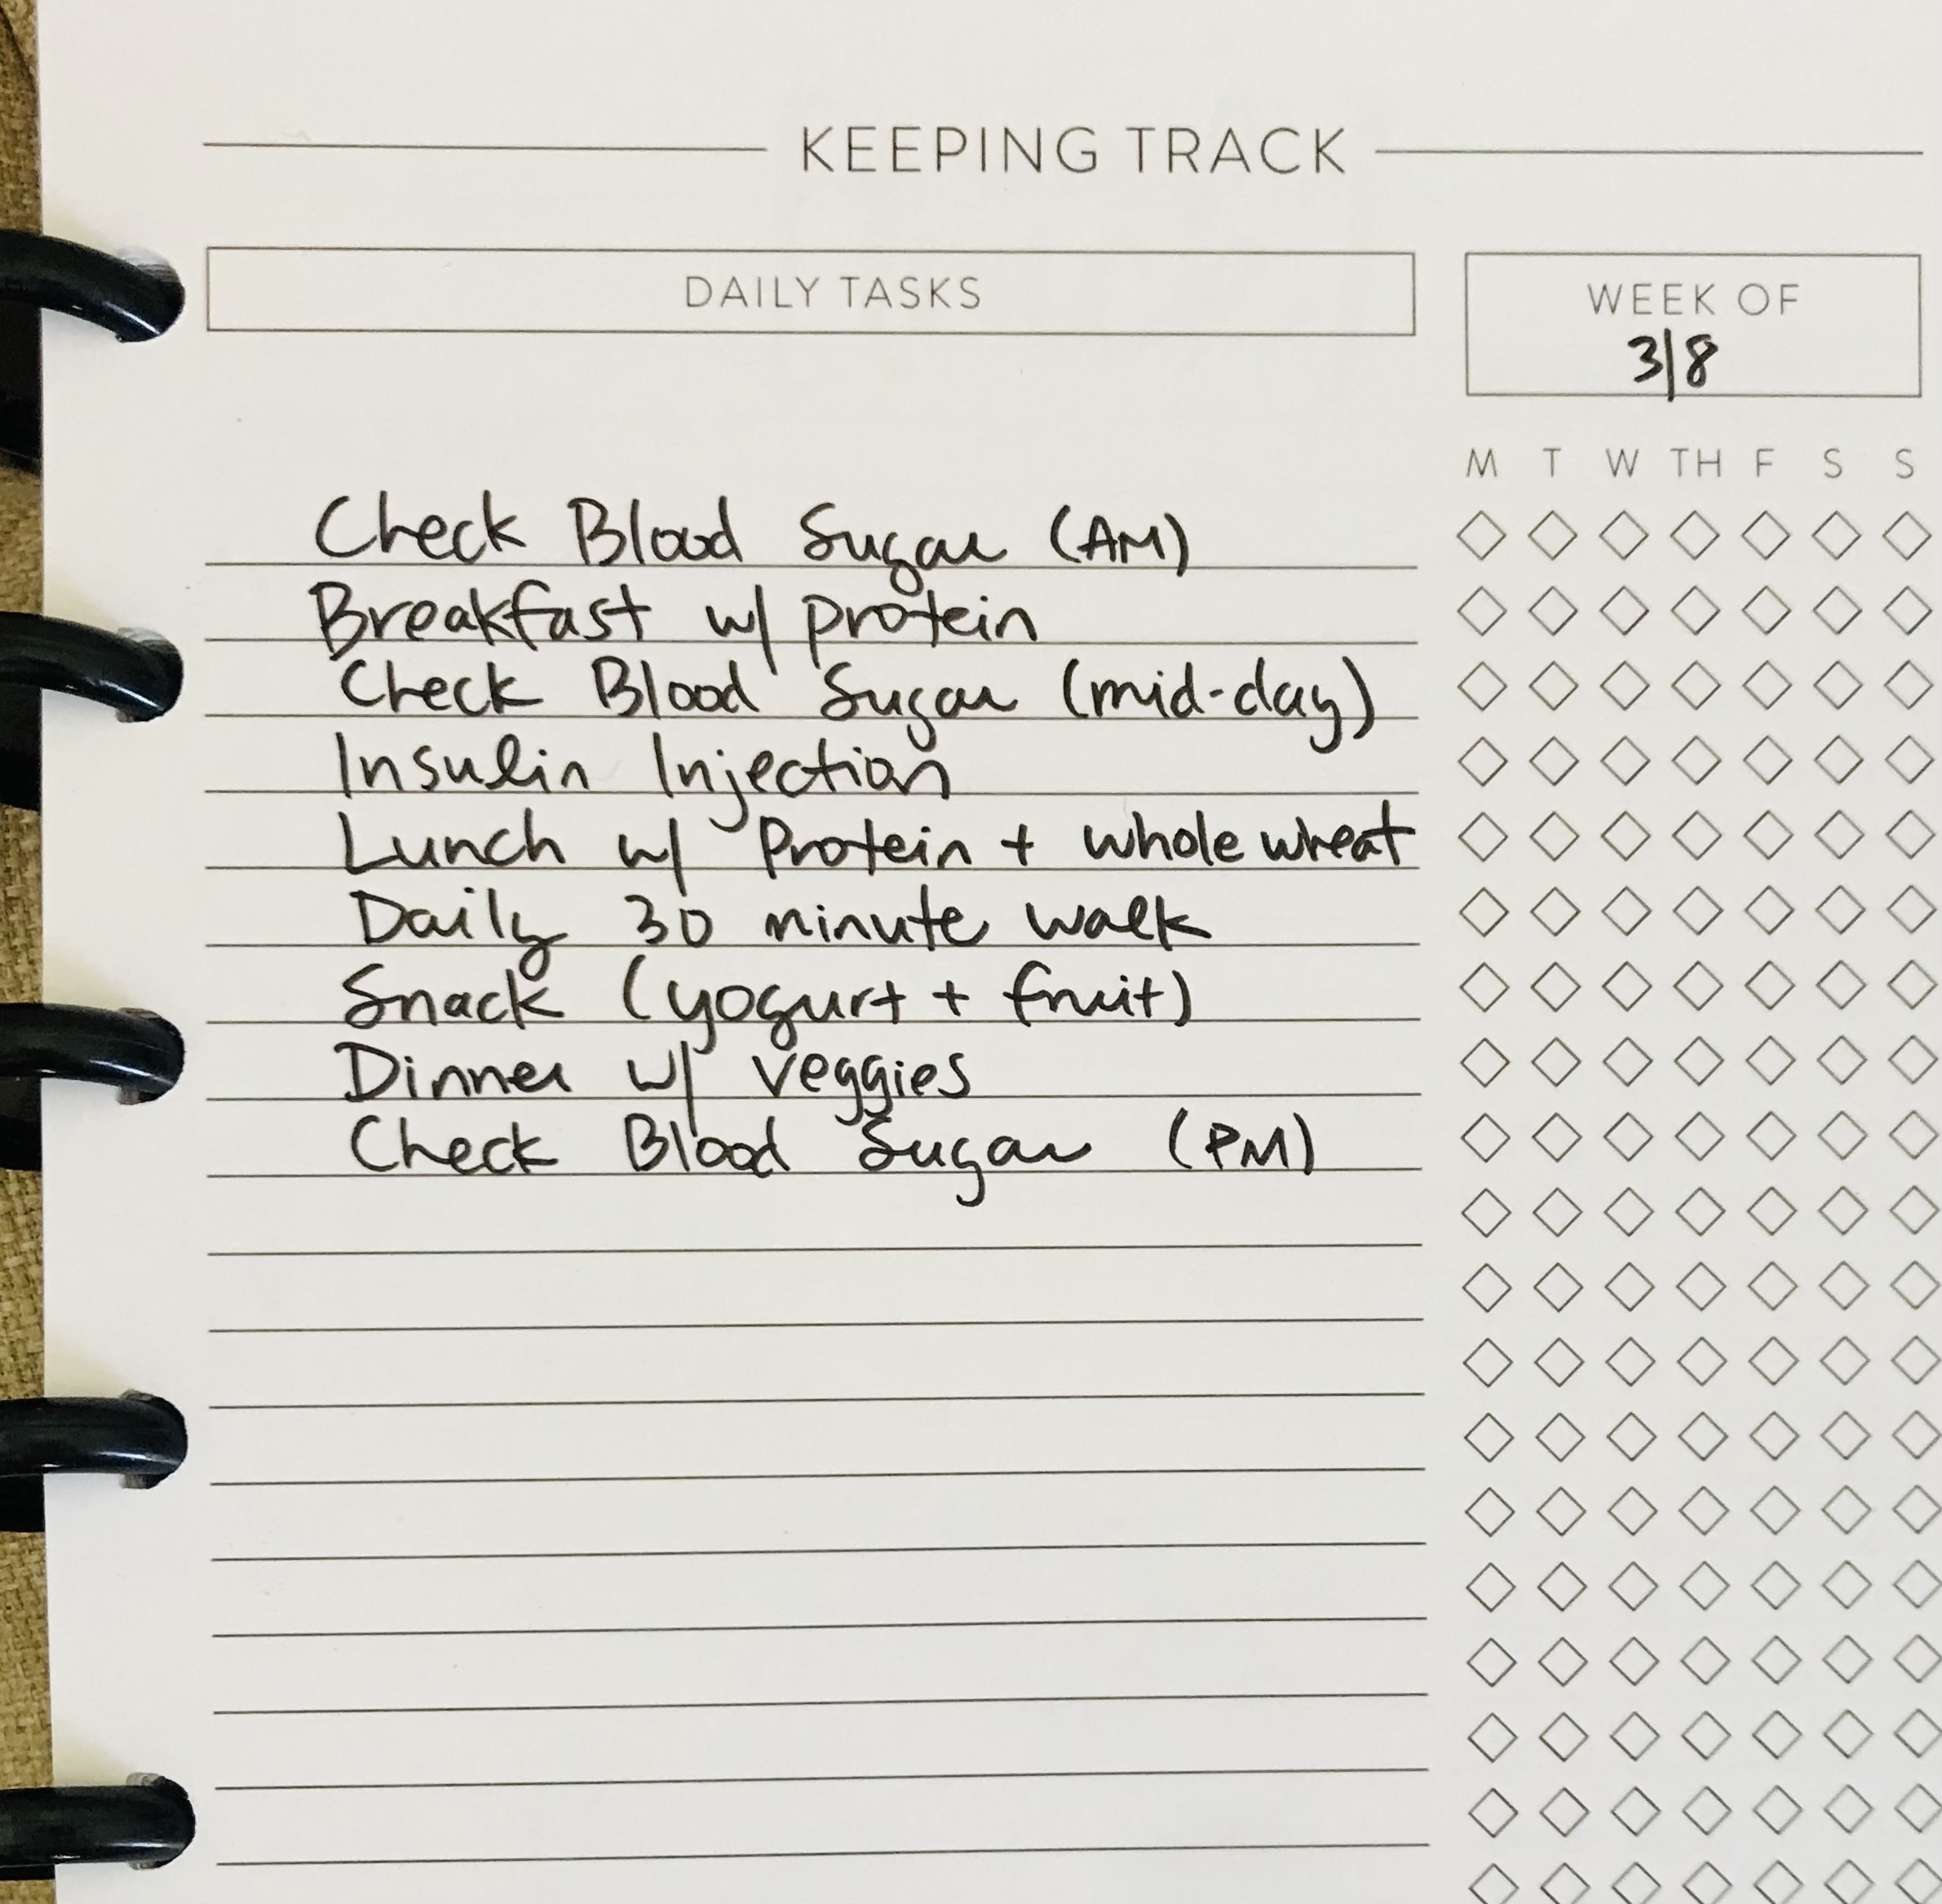 KEEPING TRACK
DAILY TASKS
WEEK OF
3/8
M T W TH F S S
Check Blood Sugar (AM)
Breakfast w/ protein
Check Blood Sugar (mid-day)
Insulin Injection
Lunch w/ Protein + whole wheat
Daily 30 minute walk
Snack (yogurt + fruit)
Dinner w/ veggies
Check Blood Sugar (PM)